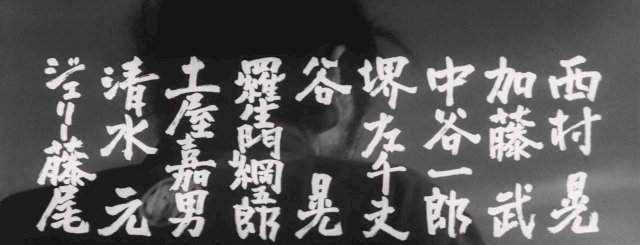 西村 晃
加藤 武
中谷一郎
堺左千夫
谷 晃
羅生門綱五郎
土屋嘉男
清水 元
ジェリー藤尾